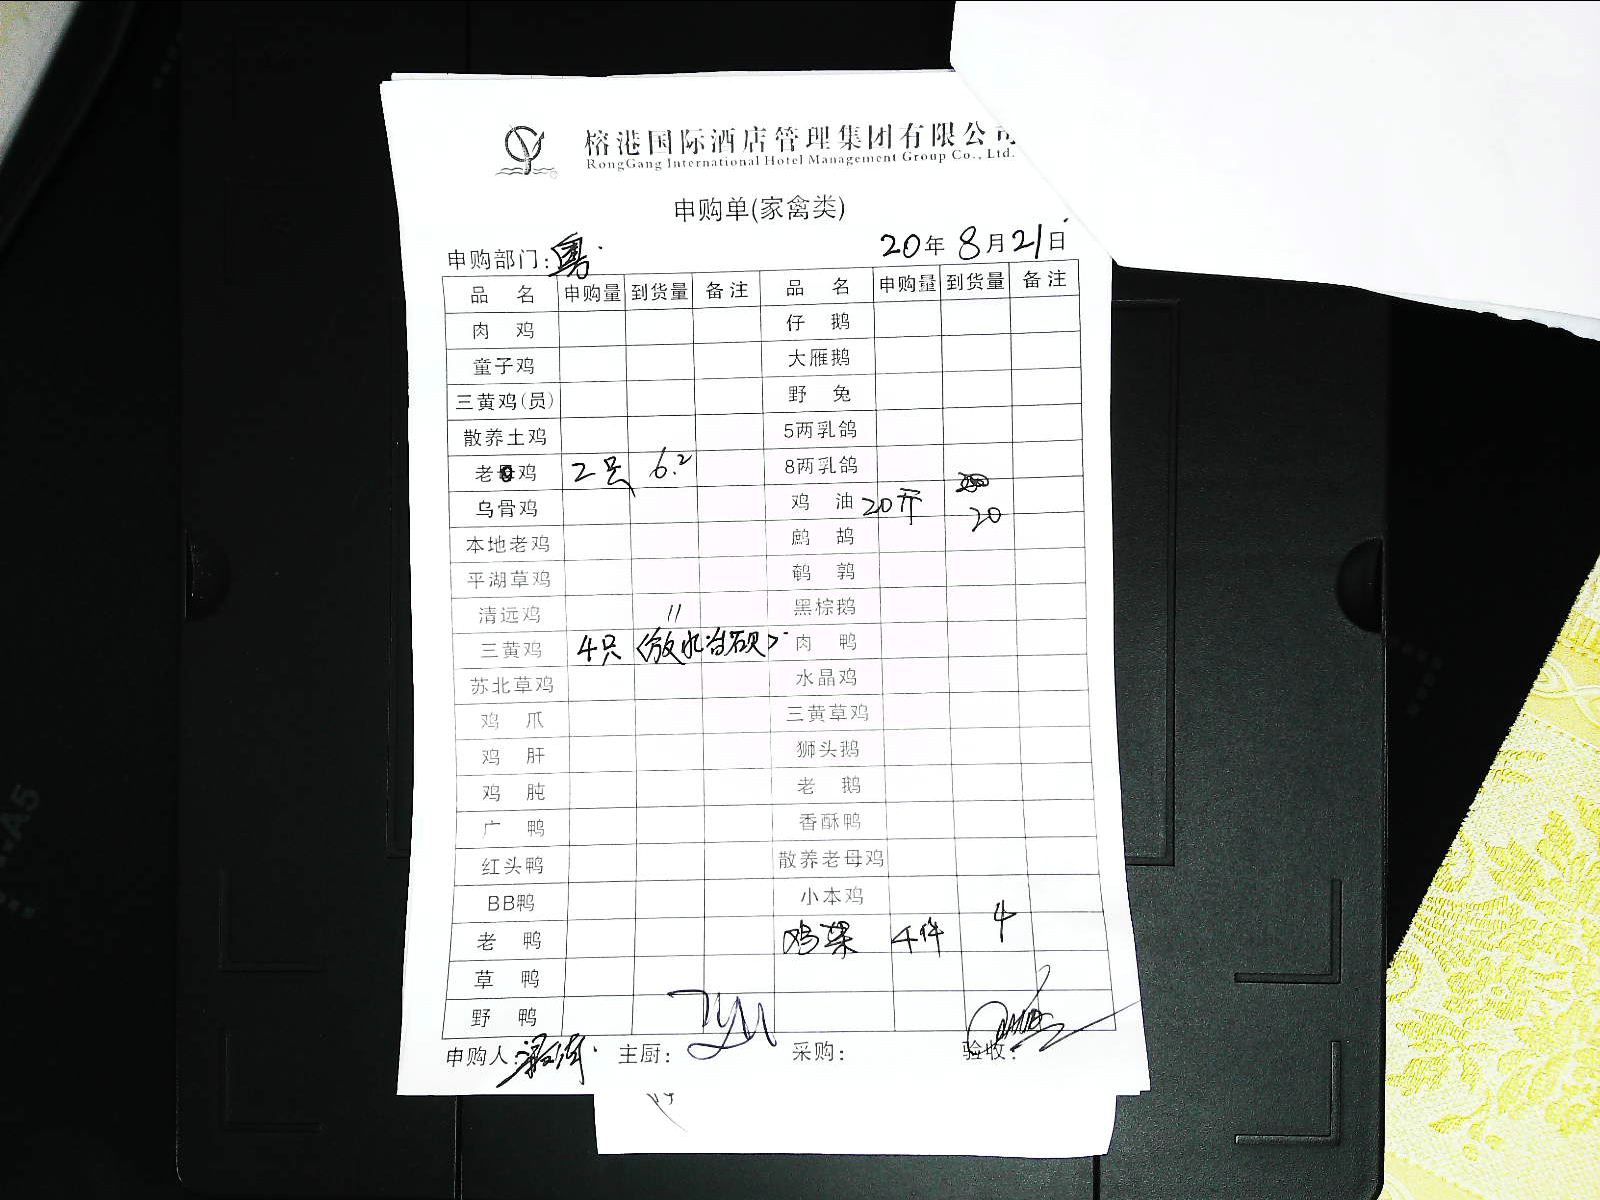 榕港国际酒店管理集团有限公司
RongGang International Hotel Management Group Co., Ltd.
申购单(家禽类)
申购部门: 粤 20年 8月21日
品 名 申购量 到货量 备注 品 名 申购量 到货量 备注
肉 鸡 仔 鹅
童子鸡 大雁鹅
三黄鸡(员) 野 兔
散养土鸡 5两乳鸽
老母鸡 2只 6.2 8两乳鸽
乌骨鸡 鸡 油 20斤 20
本地老鸡 鹧 鸪
平湖草鸡 鹌 鹑
清远鸡 11 黑棕鹅
三黄鸡 4只 肉 鸭
苏北草鸡 水晶鸡
鸡 爪 三黄草鸡
鸡 肝 狮头鹅
鸡 肫 老 鹅
广 鸭 香酥鸭
红头鸭 散养老母鸡
BB鸭 小本鸡
老 鸭 4件 4
草 鸭
野 鸭
申购人: 主厨: 采购: 验收: